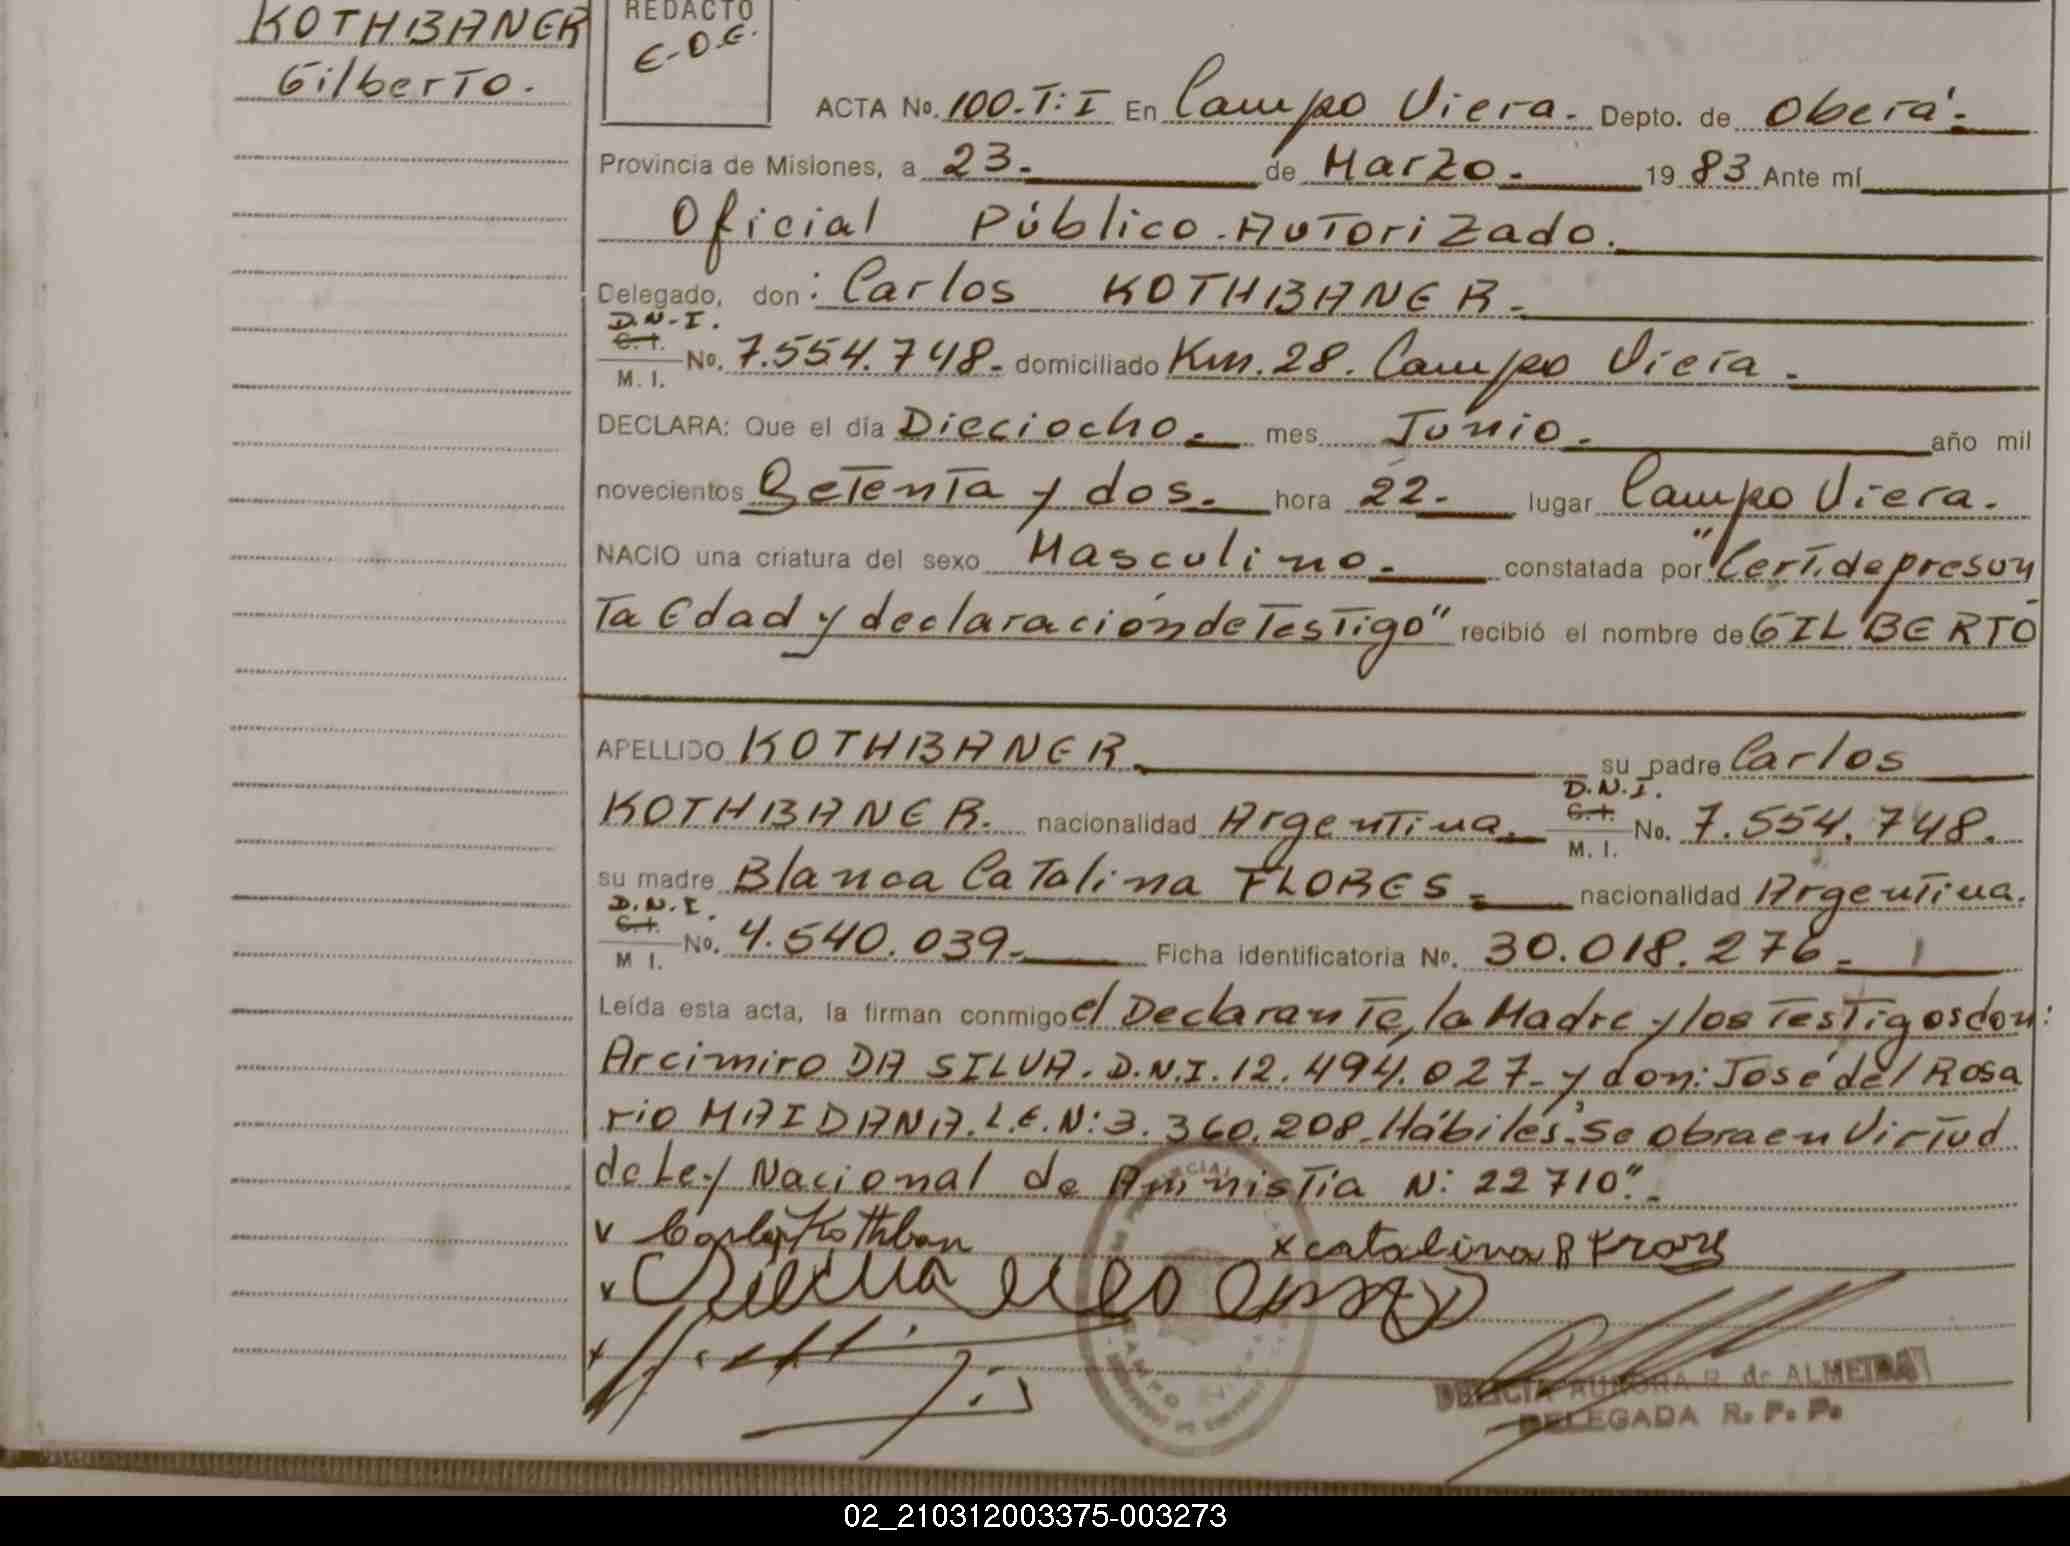 KOTHBANER
Gilberto.
REDACTO
E.O.E.
ACTA No. 100.T:I En Campo Viera. Depto. de Oberá.
Provincia de Misiones, a 23. de Marzo. 1983 Ante mí
Oficial Público Autorizado.
Delegado, don: Carlos KOTHBANER.
D.N.I.
C.I.
M. I. No. 7.554.748. domiciliado Km. 28. Campo Viera.
DECLARA: Que el día Dieciocho. mes Junio. año mil
novecientos Setenta y dos. hora 22. lugar Campo Viera.
NACIO una criatura del sexo Masculino. constatada por "Cert. de presun
ta Edad y declaración de Testigo" recibió el nombre de GILBERTO
APELLIDO KOTHBANER su padre Carlos
KOTHBANER. nacionalidad Argentina. D.N.I. C.I. M. I. No. 7.554.748.
su madre Blanca Catalina FLORES. nacionalidad Argentina.
D.N.I.
C.I.
M I. No. 4.540.039. Ficha identificatoria No. 30.018.276.
Leída esta acta, la firman conmigo el Declarante, la Madre y los Testigos don:
Arcimiro DA SILVA. D.N.I. 12.494.027. y don: José del Rosa
rio MAIDANA. L.E. N: 3.360.208. Hábiles. Se obra en Virtud
de Ley Nacional de Aministía N: 22710".
DELICIA AURORA R. de ALMEIDA
DELEGADA R. P. P.
02_210312003375-003273